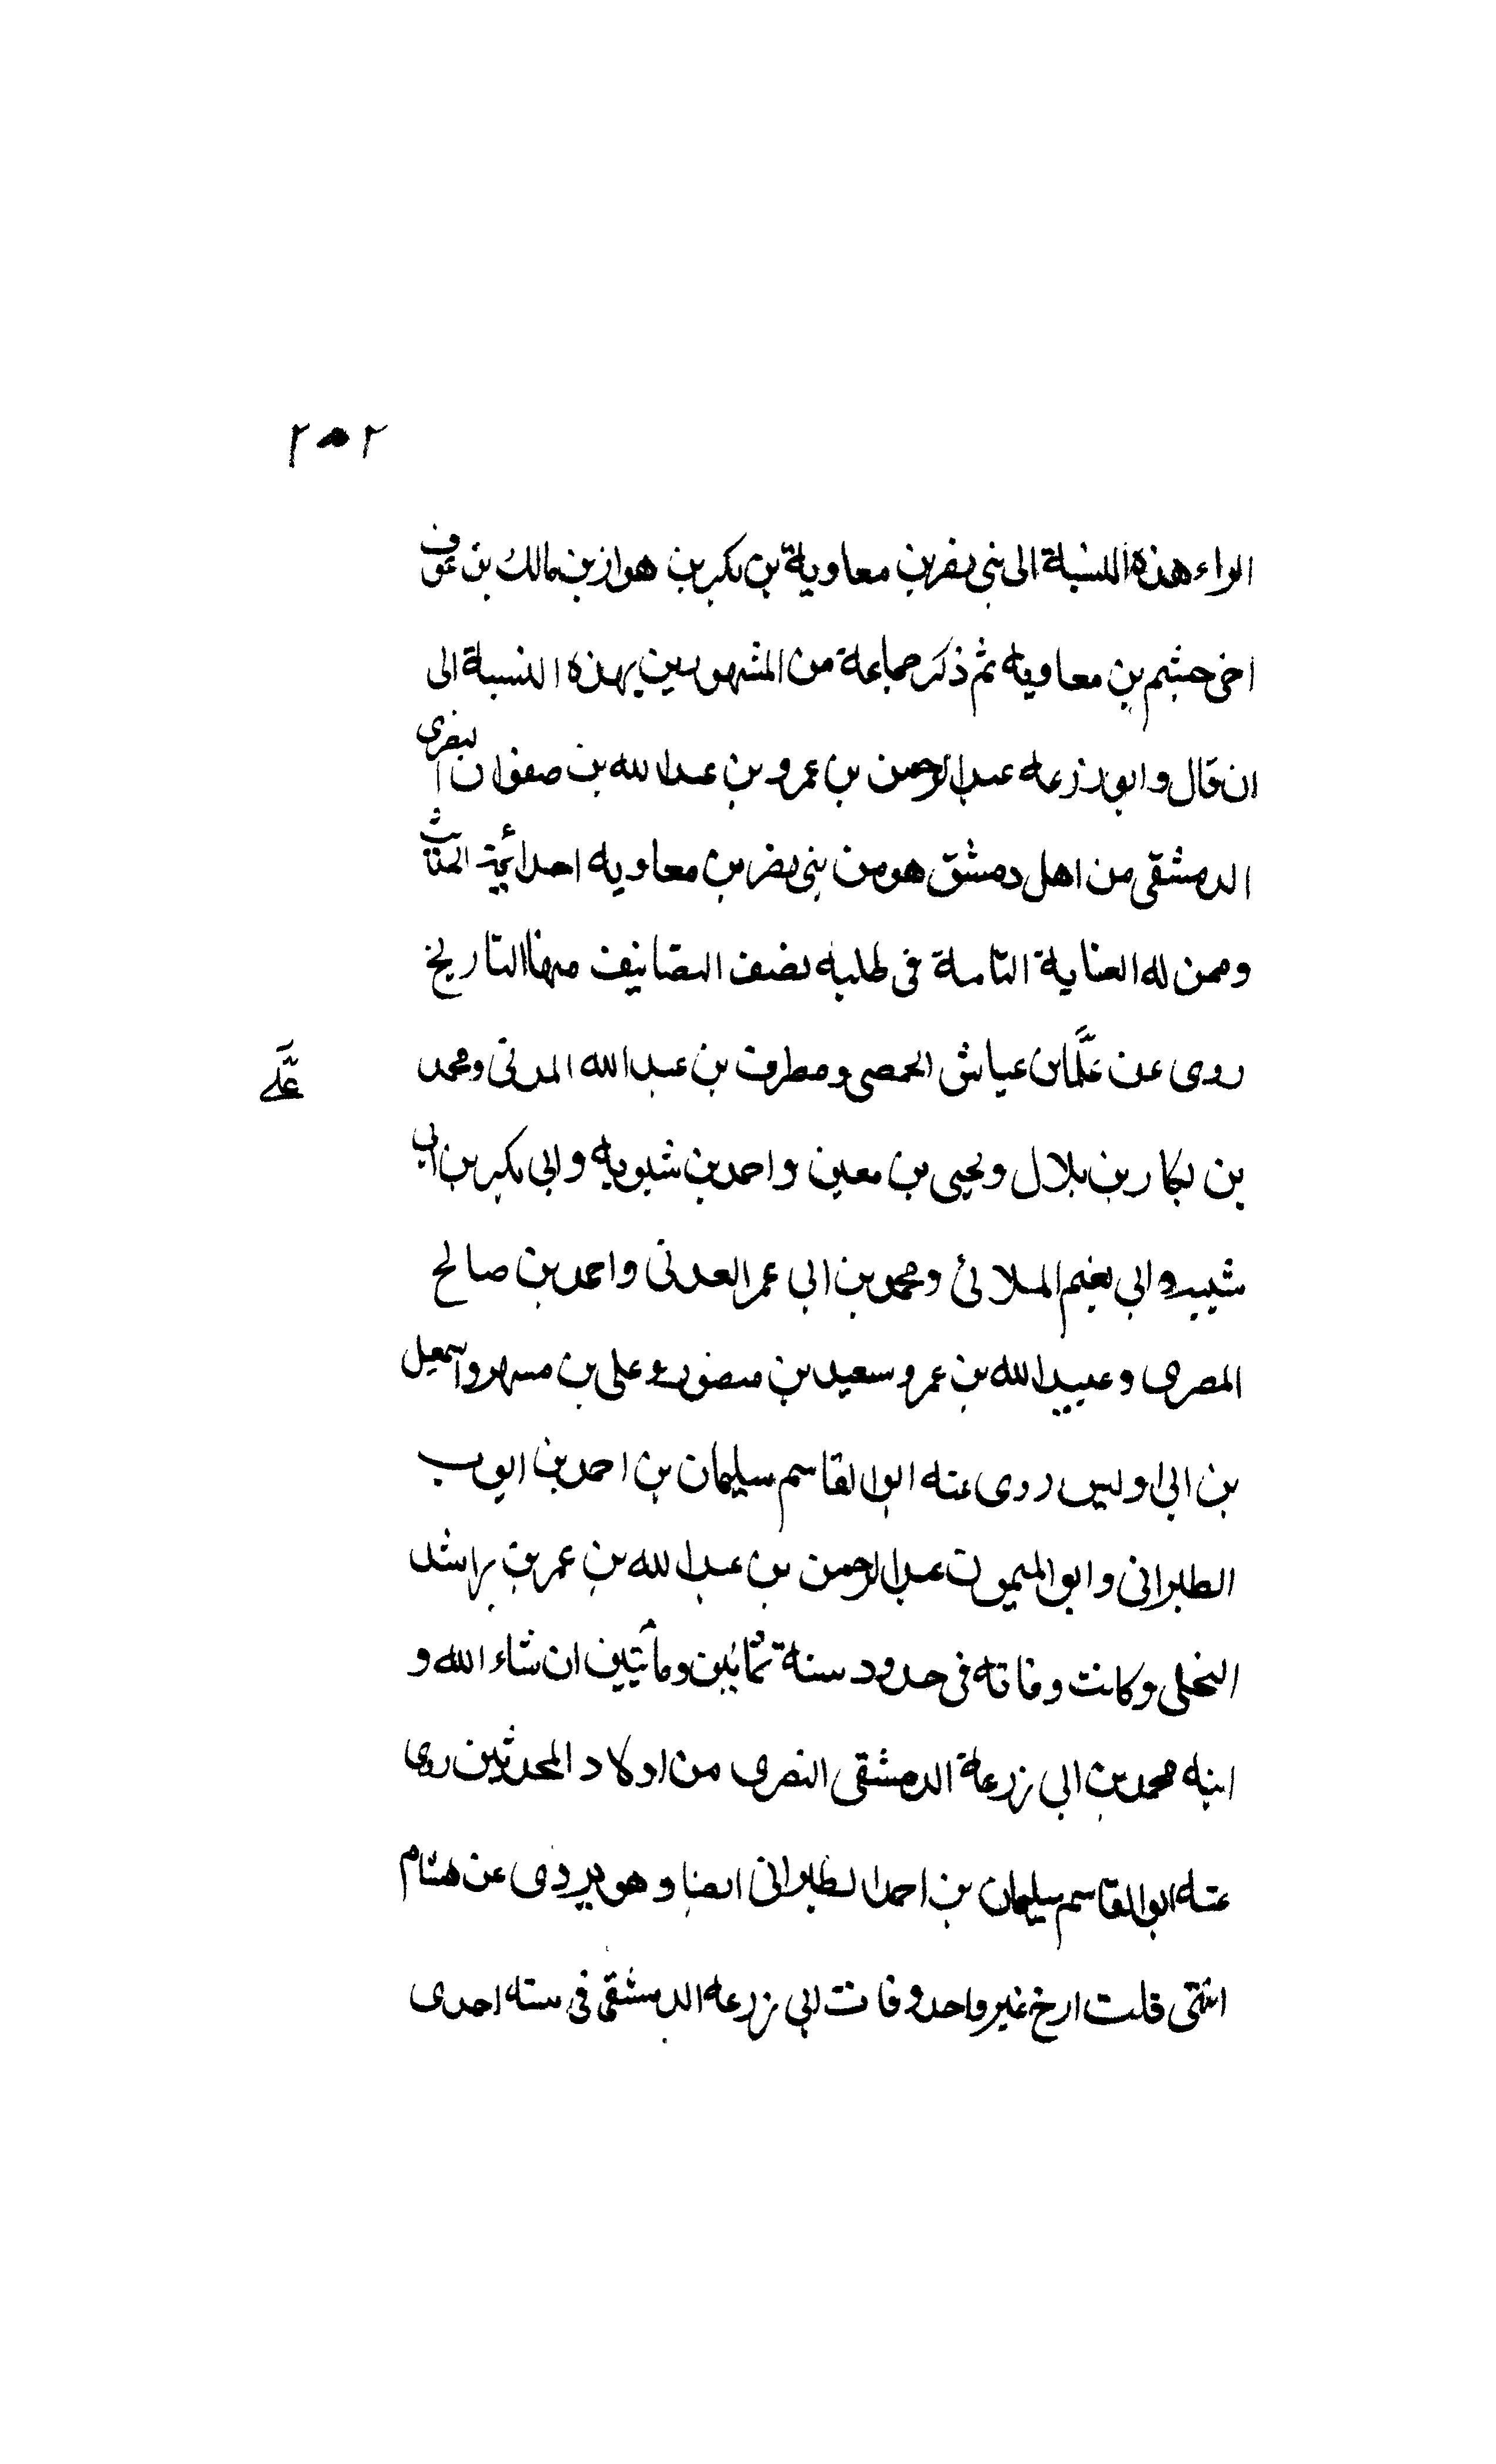 ٢٠٢
الراء هذه النسبة الى بنى نصر بن معاوية بن بكر بن هوازن بن مالك بن عوف
اخى جشم بن معاويه ثم ذكر جماعة من المشهورين بهذه النسبة الى
ان قال وابو زرعه عبد الرحمن بن عمرو بن عبد الله بن صفوان النصرى
الدمشقى من اهل دمشق هو من بنى نصر بن معاويه احد ائمة
وممن له العناية التامة فى طلبه نصف التصانيف منها التاريخ
روى عن على بن عياش الحمصى ومطرف بن عبد الله المدنى ومحمد
على
بن بكار بن بلال ويحيى بن معين واحمد بن شبويه وابى بكر بن ابى
شيبه وابى نعيم الملائى ومحمد بن ابى عمر العدنى واحمد بن صالح
المصرى وعبيد الله بن عمر وسعيد بن منصور وعلى بن مسهر واسمعيل
بن ابى اويس روى عنه ابو القاسم سليمان بن احمد بن ايوب
الطبرانى وابو الميمون عبد الرحمن بن عبد الله بن عمر بن راشد
البجلى وكانت وفاته فى حدود سنة ثمانين ومأتين ان شاء الله و
ابنه محمد بن ابى زرعة الدمشقى النصرى من اولاد المحدثين روى
عنه ابو القاسم سليمان بن احمد الطبرانى ايضا وهو يروى عن هشام
انتهى قلت ارخ غير واحد وفات ابى زرعه الدمشقى فى سنه احدى